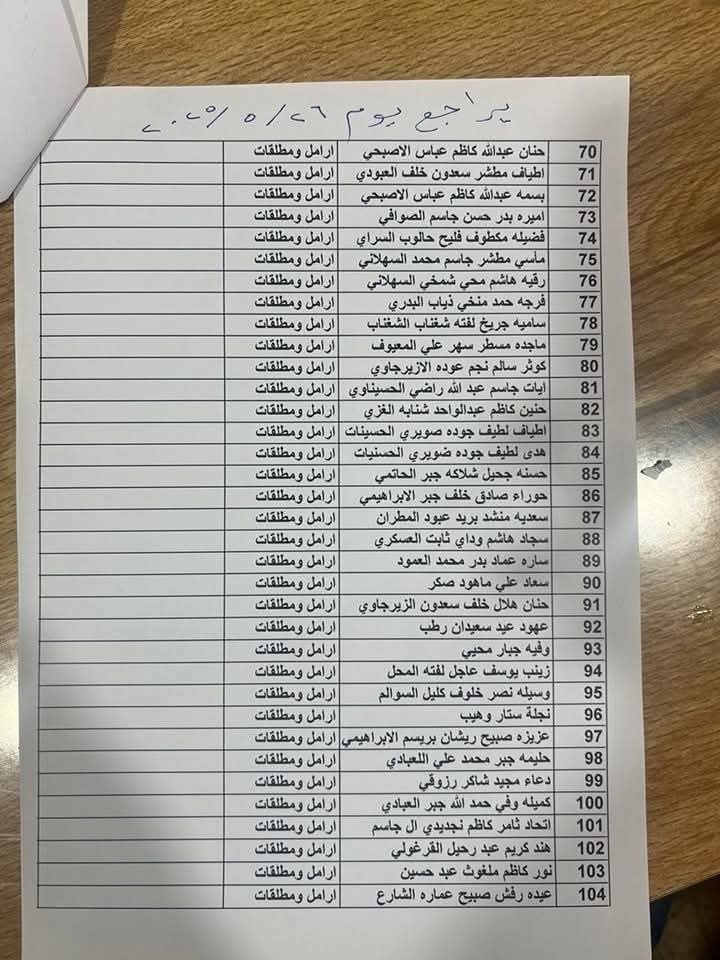 يراجع يوم ٢٦ / ٥ / ٢٠٢٥
70 حنان عبدالله كاظم عباس الاصبحي ارامل ومطلقات
71 اطياف مطشر سعدون خلف العبودي ارامل ومطلقات
72 بسمه عبدالله كاظم عباس الاصبحي ارامل ومطلقات
73 اميره بدر حسن جاسم الصوافي ارامل ومطلقات
74 فضيله مكطوف فليح حالوب السراي ارامل ومطلقات
75 مأسي مطشر جاسم محمد السهلاني ارامل ومطلقات
76 رقيه هاشم محي شمخي السهلاني ارامل ومطلقات
77 فرجه حمد منخي ذياب البدري ارامل ومطلقات
78 ساميه جريخ لفته شغناب الشغناب ارامل ومطلقات
79 ماجده مسطر سهر علي المعيوف ارامل ومطلقات
80 كوثر سالم نجم عوده الازيرجاوي ارامل ومطلقات
81 ايات جاسم عبد الله راضي الحسيناوي ارامل ومطلقات
82 حنين كاظم عبدالواحد شنابه الغزي ارامل ومطلقات
83 اطياف لطيف جوده صويري الحسينات ارامل ومطلقات
84 هدى لطيف جوده ضويري الحسنيات ارامل ومطلقات
85 حسنه جحيل شلاكه جبر الحاتمي ارامل ومطلقات
86 حوراء صادق خلف جبر الابراهيمي ارامل ومطلقات
87 سعديه منشد بريد عبود المطران ارامل ومطلقات
88 سجاد هاشم وداي ثابت العسكري ارامل ومطلقات
89 ساره عماد بدر محمد العمود ارامل ومطلقات
90 سعاد علي ماهود صكر ارامل ومطلقات
91 حنان هلال خلف سعدون الزيرجاوي ارامل ومطلقات
92 عهود عيد سعيدان رطب ارامل ومطلقات
93 وفيه جبار محيي ارامل ومطلقات
94 زينب يوسف عاجل لفته المحل ارامل ومطلقات
95 وسيله نصر خلوف كليل السوالم ارامل ومطلقات
96 نجلة ستار وهيب ارامل ومطلقات
97 عزيزه صبيح ريشان بريسم الابراهيمي ارامل ومطلقات
98 حليمه جبر محمد علي اللعبادي ارامل ومطلقات
99 دعاء مجيد شاكر رزوقي ارامل ومطلقات
100 كميله وفي حمد الله جبر العبادي ارامل ومطلقات
101 اتحاد ثامر كاظم نجديدي ال جاسم ارامل ومطلقات
102 هند كريم عبد رحيل القرغولي ارامل ومطلقات
103 نور كاظم ملغوث عبد حسين ارامل ومطلقات
104 عيده رفش صبيح عماره الشارع ارامل ومطلقات